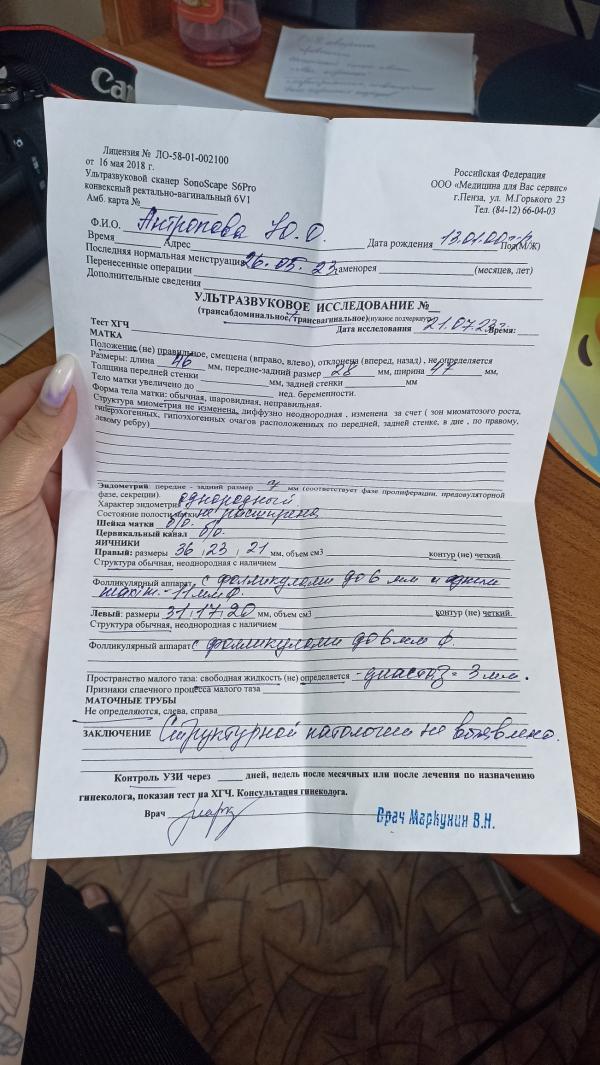 Can
Лицензия № ЛО-58-01-002100
от 16 мая 2018 г.
Ультразвуковой сканер SonoScape S6Pro
конвексный ректально-вагинальный 6V1
Амб. карта №
Российская Федерация
ООО «Медицина для Вас сервис»
г.Пенза, ул. М.Горького 23
Тел. (84-12) 66-04-03
Ф.И.О. Антропова Ю.О. Дата рождения 13.01.00
Время Адрес Пол(М/Ж)
Последняя нормальная менструация 26.05.23, аменорея (месяцев, лет)
Перенесенные операции
Дополнительные сведения
УЛЬТРАЗВУКОВОЕ ИССЛЕДОВАНИЕ №
(трансабдоминальное/трансвагинальное)(нужное подчеркнуть)
Тест ХГЧ Дата исследования 21.07.23г. Время:
МАТКА
Положение (не) правильное, смещена (вправо, влево), отклонена (вперед, назад) , не определяется
Размеры: длина 46 мм, передне-задний размер 28 мм, ширина 47 мм,
Толщина передней стенки мм, задней стенки мм
Тело матки увеличено до нед. беременности.
Форма тела матки: обычная, шаровидная, неправильная.
Структура миометрия не изменена, диффузно неоднородная , изменена за счет ( зон миоматозного роста,
гиперэхогенных, гипоэхогенных очагов расположенных по передней, задней стенке, в дне , по правому,
левому ребру)
Эндометрий: передне - задний размер мм (соответствует фазе пролиферации, предовуляторной
фазе, секреции).
Характер эндометрия однородный
Состояние полости матки не расширена
Шейка матки б/о.
Цервикальный канал б/о.
ЯИЧНИКИ
Правый: размеры 36 , 23 , 21 мм, объем см3 контур (не) четкий
Структура обычная, неоднородная с наличием
Фолликулярный аппарат с фолликулами до 6 мм и одним
maxim. - 11мм ф.
Левый: размеры 31, 17, 20 мм, объем см3 контур (не) четкий
Структура обычная, неоднородная с наличием
Фолликулярный аппарат с фолликулами до 6 мм ф.
Пространство малого таза: свободная жидкость (не) определяется - диастаз = 3 мм.
Признаки спаечного процесса малого таза
МАТОЧНЫЕ ТРУБЫ
Не определяются, слева, справа
ЗАКЛЮЧЕНИЕ Структурной патологии не выявлено.
Контроль УЗИ через дней, недель после месячных или после лечения по назначению
гинеколога, показан тест на ХГЧ. Консультация гинеколога.
Врач Врач Маркунин В.Н.